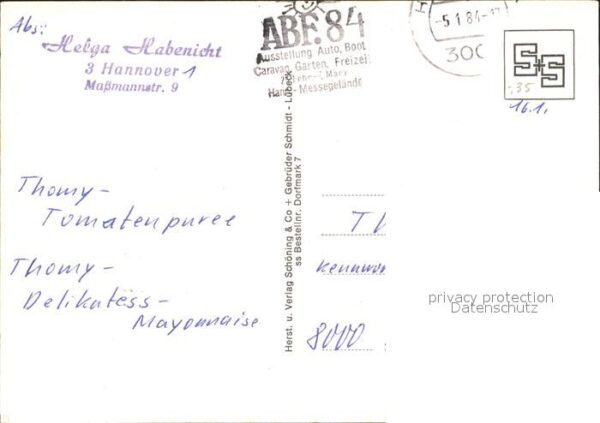 Abs:
Helga Habenicht
3 Hannover 1
Maßmannstr. 9
ABF. 84
Ausstellung Auto, Boot
Caravan, Garten, Freizeit
Messegelände
-5.1.84-
300
S+S
35
16.1.
Thomy-
Tomatenpuree
Thomy-
Delikatess-
Mayonnaise
Herst. u. Verlag Schöning & Co + Gebrüder Schmidt - Lübeck
ss Bestellnr. Dorfmark 7
Kennwor
8000
privacy protection
Datenschutz